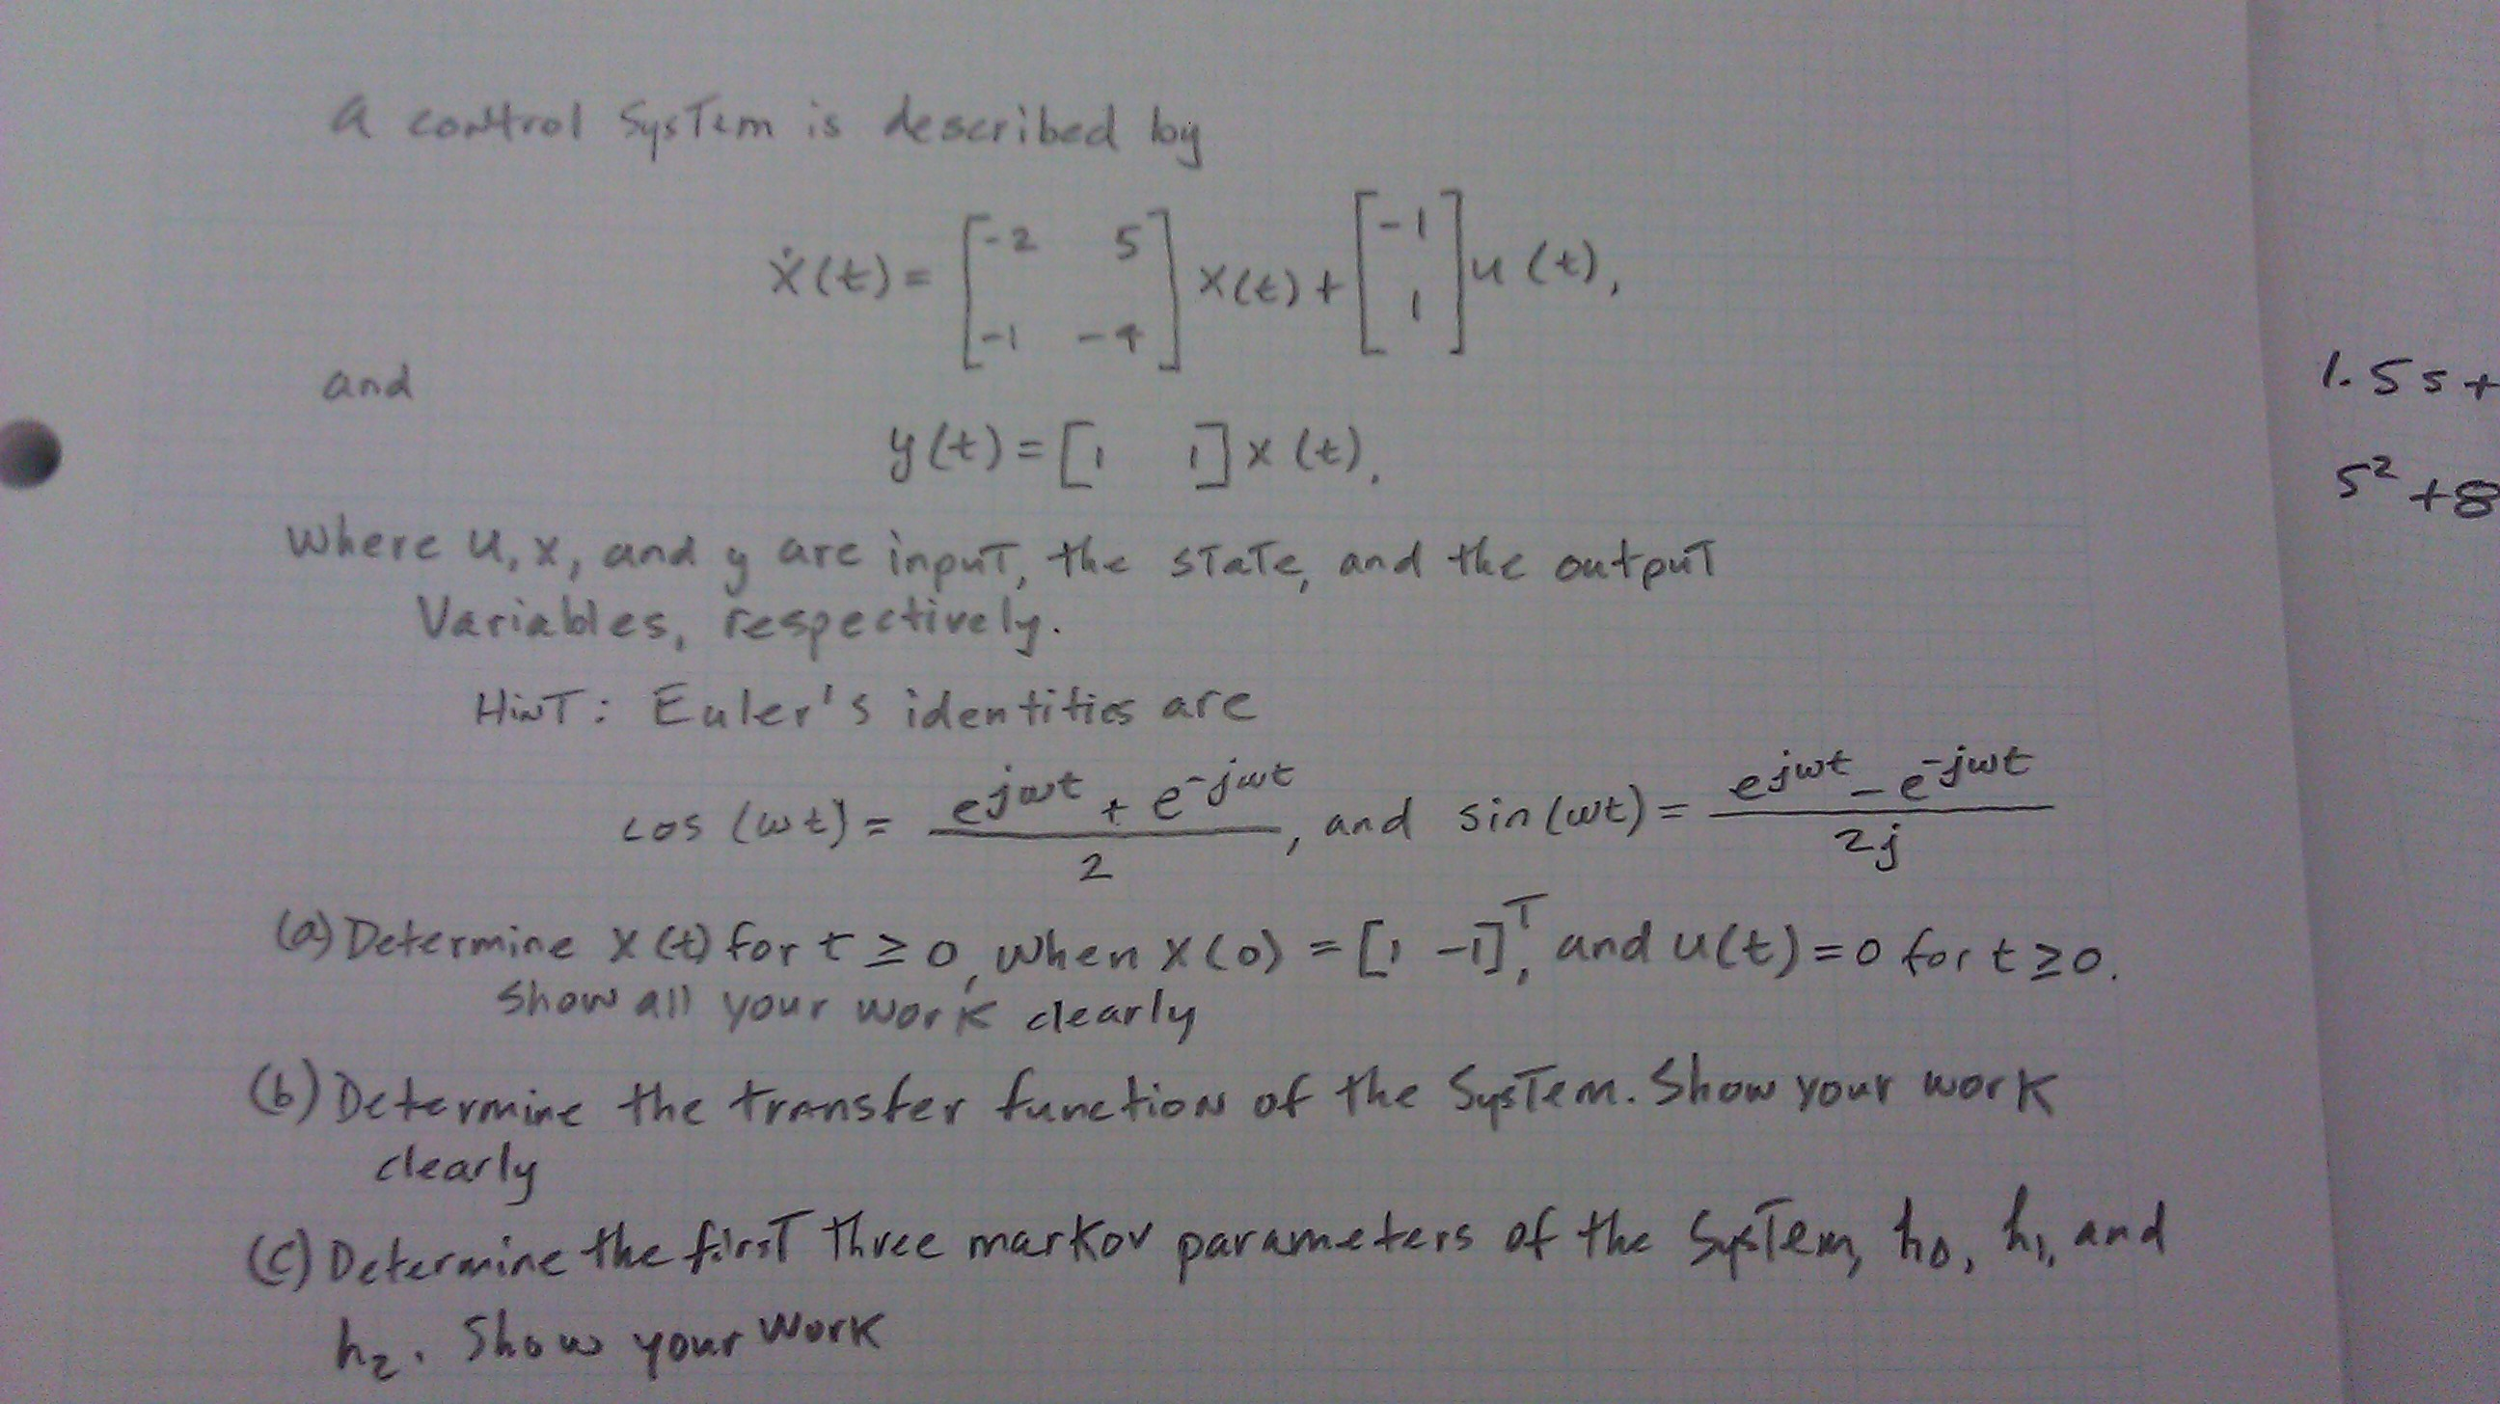 A control System is described by
ẋ(t) = [-2 5; -1 -4] x(t) + [-1; 1] u(t),
and
y(t) = [1 1] x(t).
Where u, x, and y are input, the state, and the output
Variables, respectively.
Hint: Euler's identities are
cos(ωt) = (e^{jωt} + e^{-jωt})/2, and sin(ωt) = (e^{jωt} - e^{-jωt})/2j
(a) Determine x(t) for t ≥ 0, when x(0) = [1 -1]^T, and u(t) = 0 for t ≥ 0.
Show all your work clearly
(b) Determine the transfer function of the System. Show your work
clearly
(c) Determine the first three markov parameters of the System, h₀, h₁, and
h₂. Show your work
1.5s+
s²+8